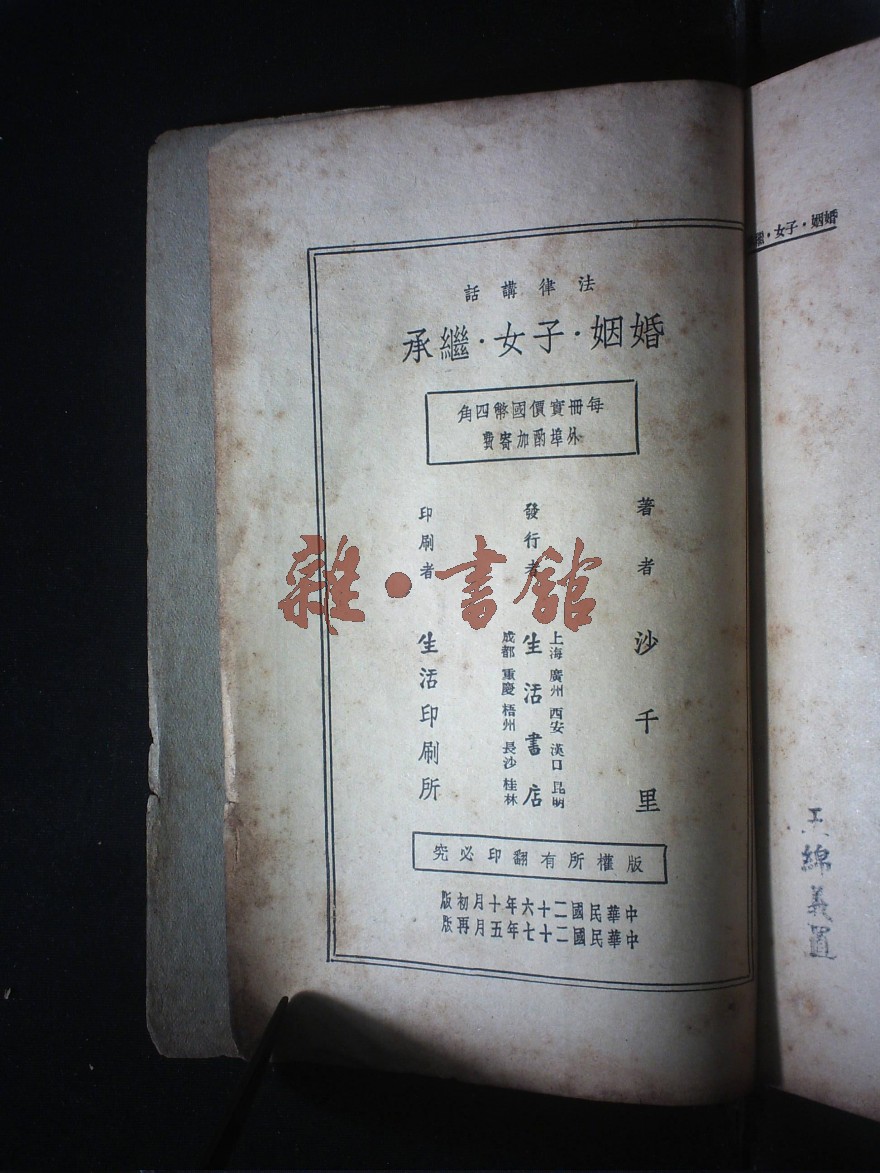 法律講話
婚姻·子女·繼承
每冊實價國幣四角
外埠酌加寄費
著者 沙千里
發行者 生活書店
上海 廣州 西安 漢口 昆明
成都 重慶 梧州 長沙 桂林
印刷者 生活印刷所
版權所有翻印必究
中華民國二十六年十月初版
中華民國二十七年五月再版
雜·書館
婚姻·子女·繼
綿義置